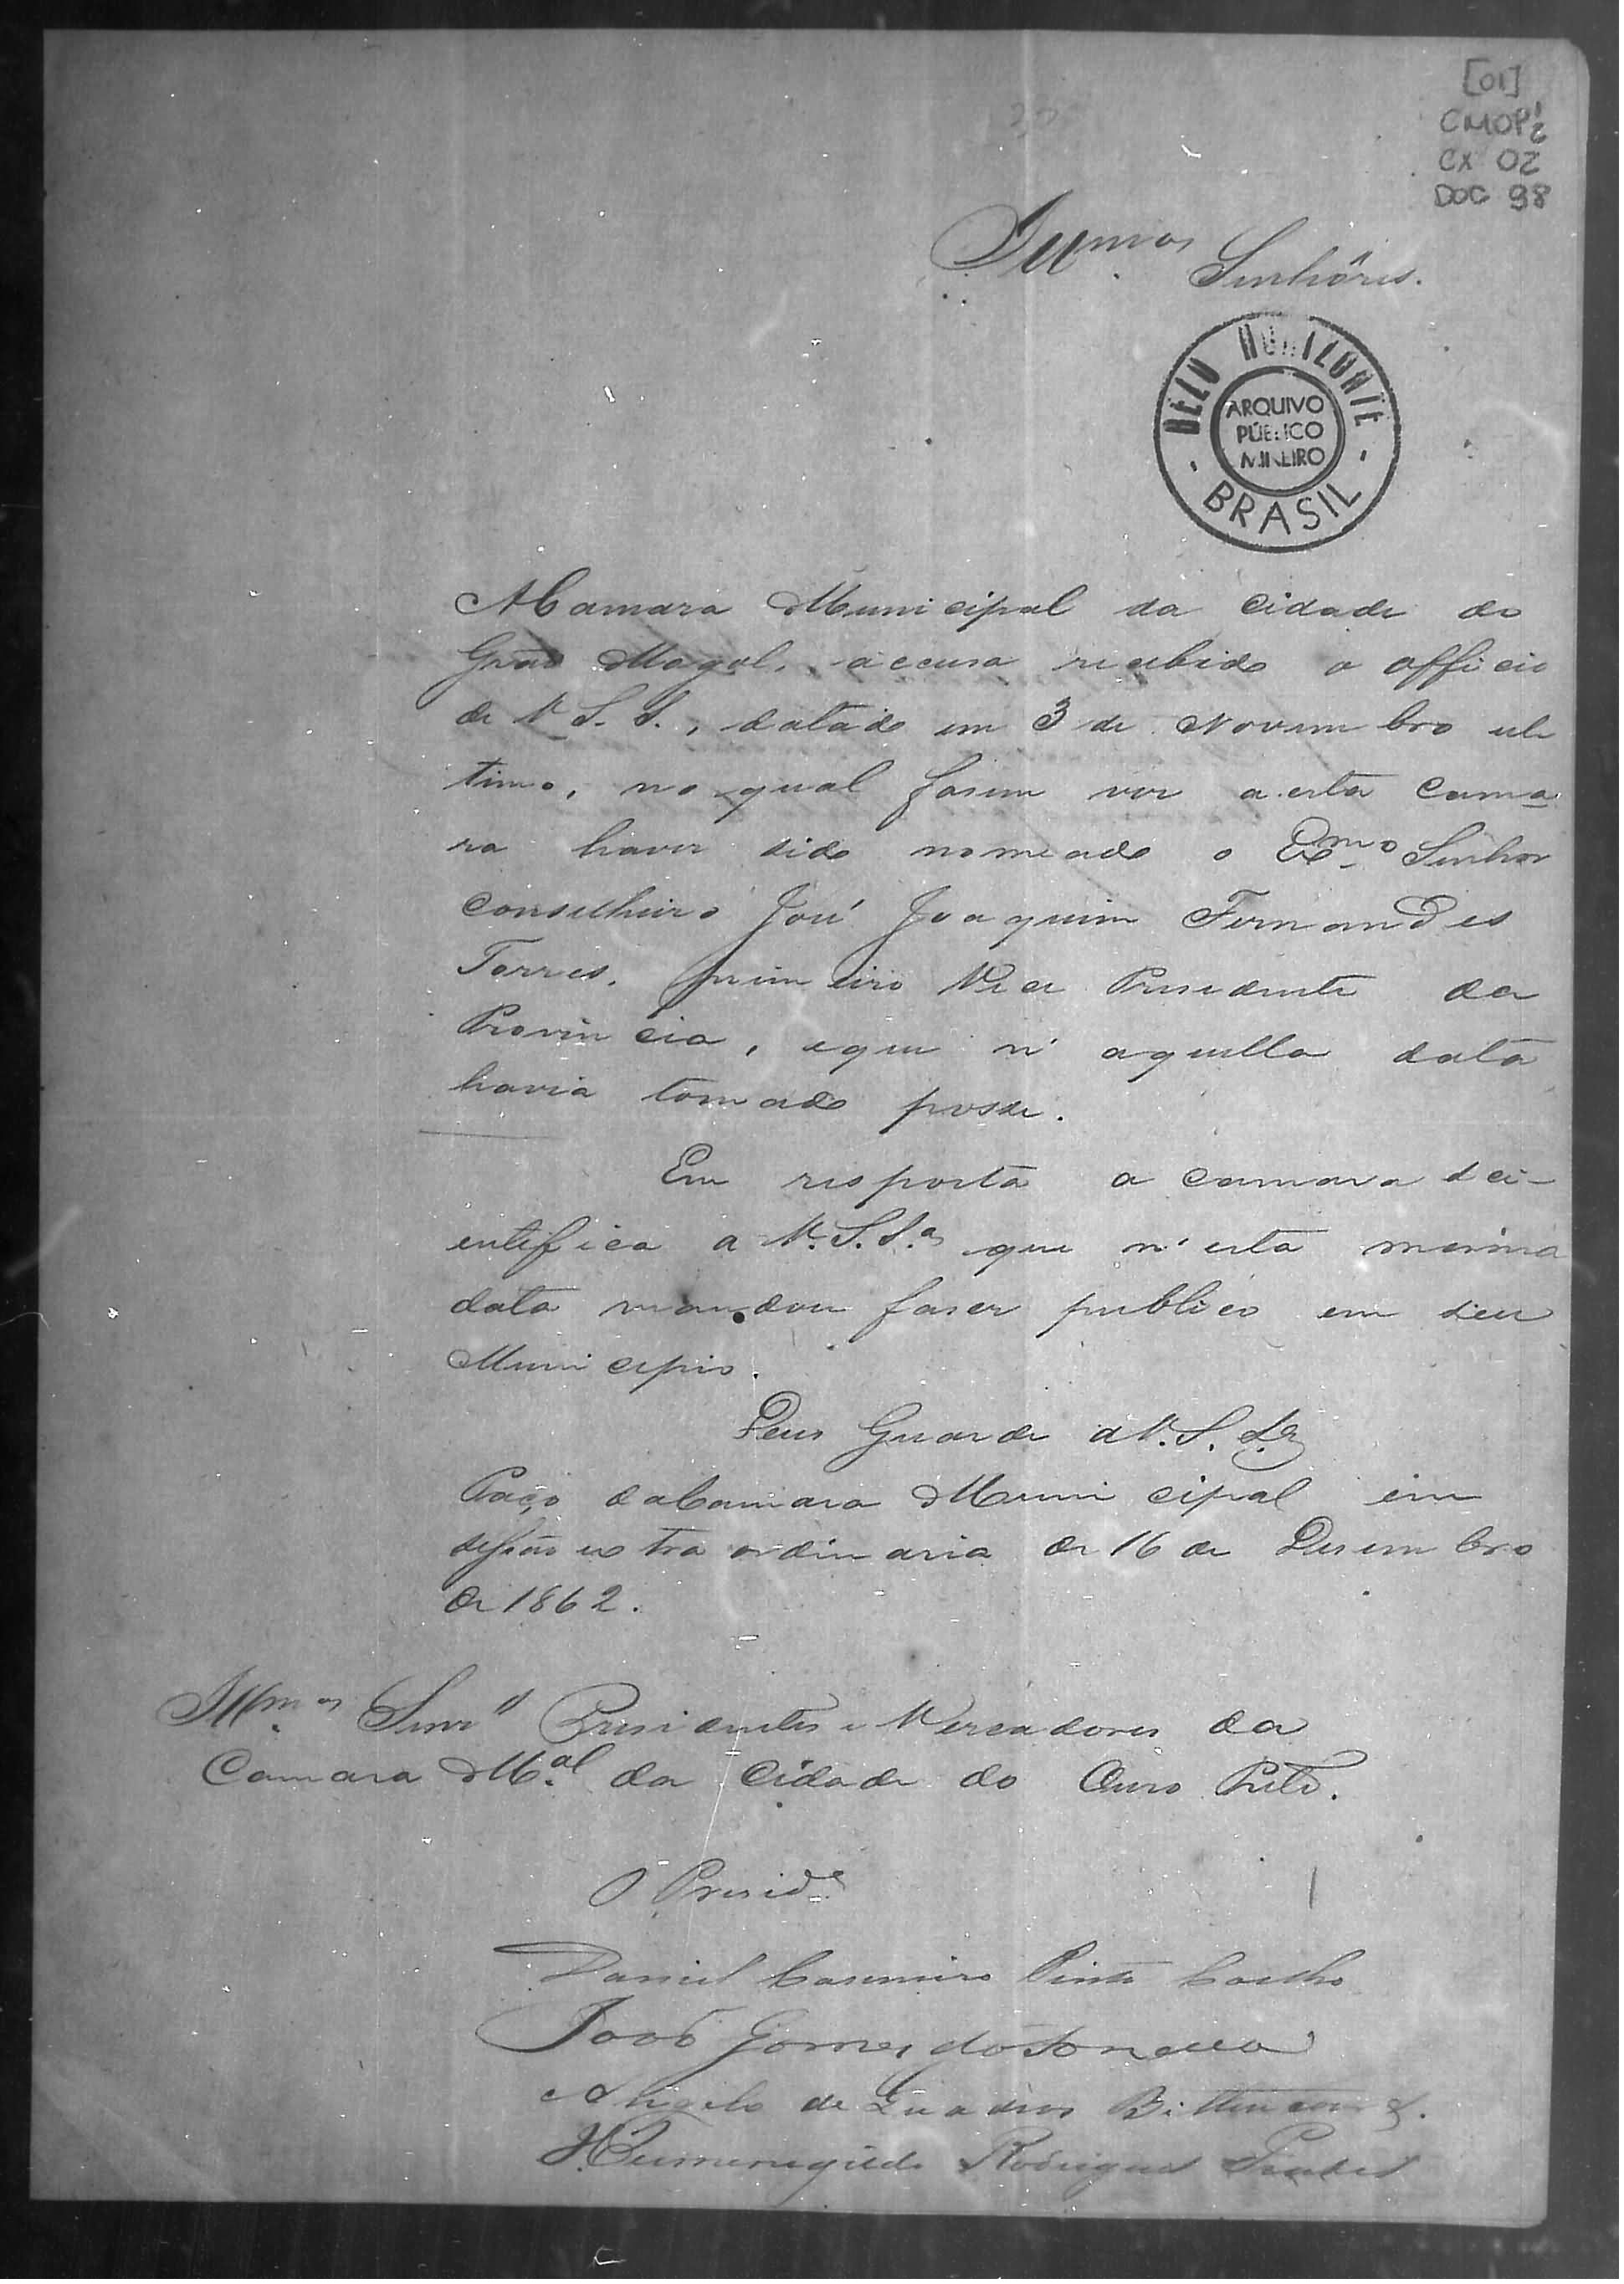 [01]
CMOP 1/2
CX 02
DOC 98
Illmos Senhôres.
BELO HORIZONTE
ARQUIVO
PÚBLICO
MINEIRO
BRASIL
A Camara Municipal da Cidade do
Grão Mogol, accusa recebido o officio
de V. S. S., datado em 3 de Novembro ul
timo, no qual fasem ver a esta Cama
ra haver sido nomeado o Exmo Senhor
Conselheiro José Joaquim Fernandes
Torres, primeiro Vice Presidente da
Provincia, eque n'aquella data
havia tomado posse.
Em resposta a Camara sci-
entifica a V. S. S.as que n'esta mesma
data mandou faser publico em seu
Municipio.
Deus Guarde a V. S. S.as
Paço da Camara Municipal em
sessão extraordinaria de 16 de Desembro
de 1862.
Illmos Senr.s Presidentes e Vereadores da
Camara M.al da Cidade do Ouro Preto.
O Presid.e
Daniel Casemiro Pinto Coelho
João Gomes
Angelo de Quadros Bittencourt.
Hermenegildo Rodrigues Prates